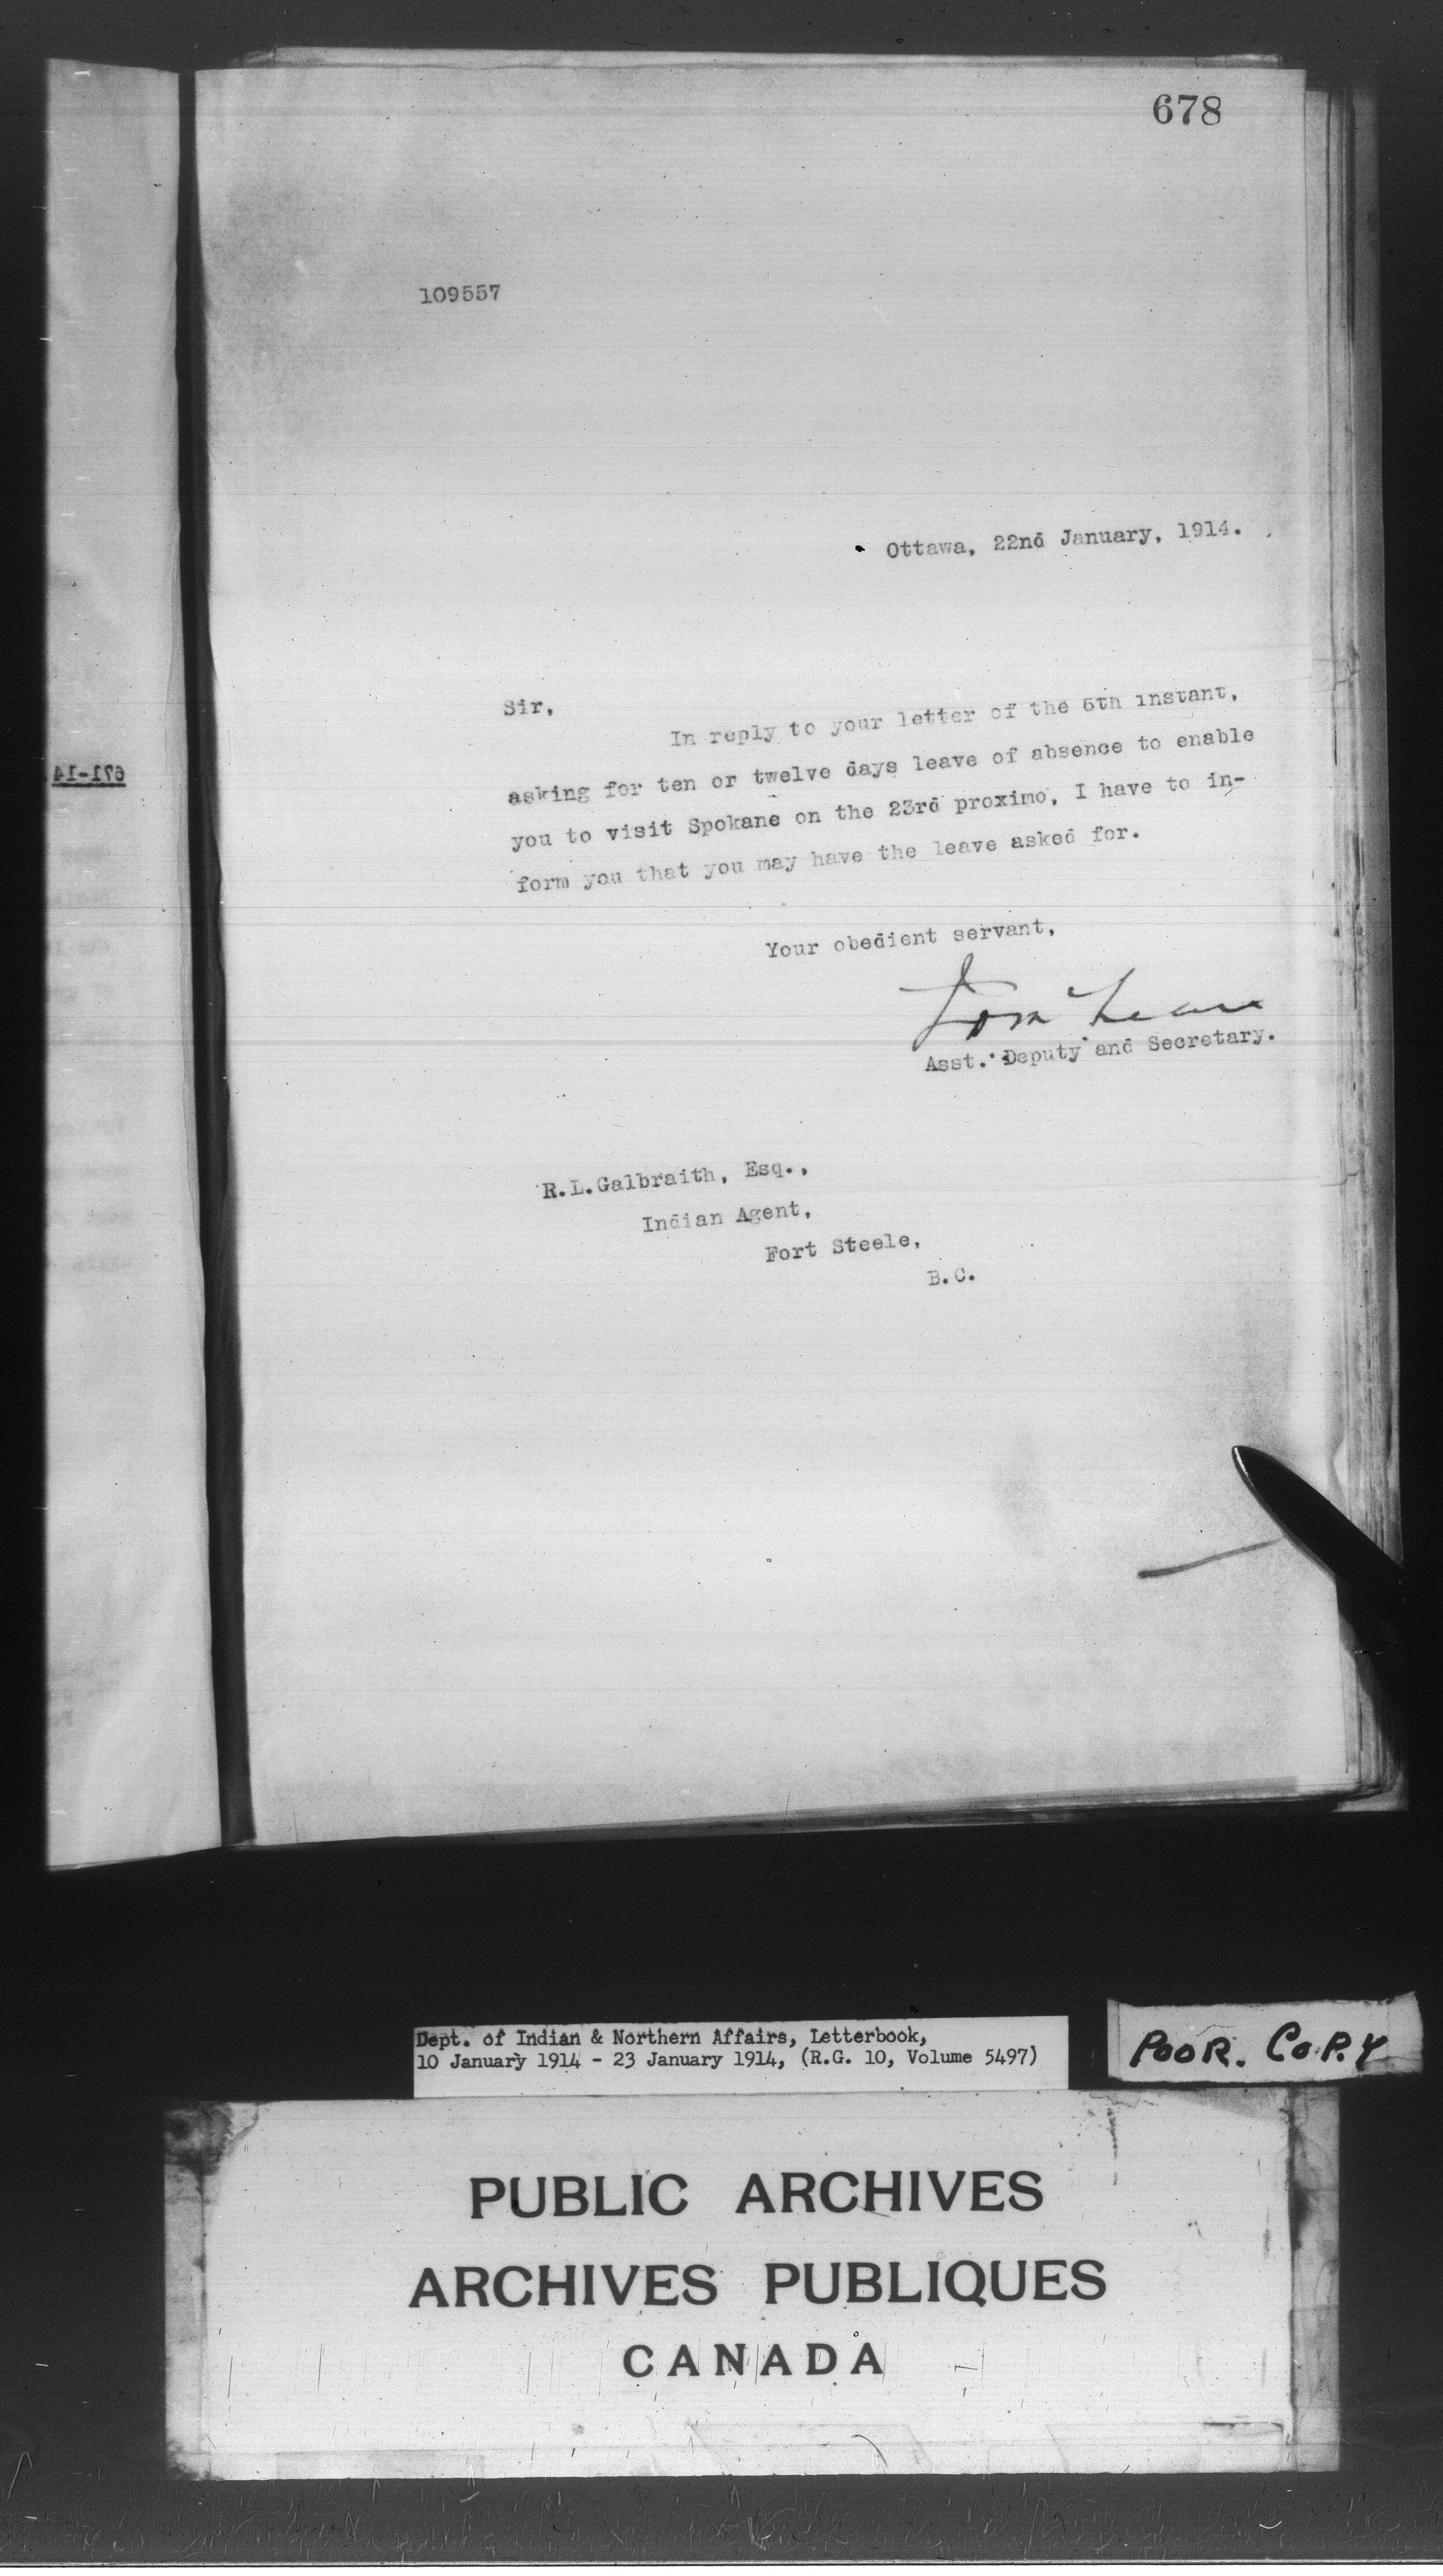 678
109557
Ottawa, 22nd January, 1914.
Sir,
In reply to your letter of the 6th instant,
asking for ten or twelve days leave of absence to enable
you to visit Spokane on the 23rd proximo, I have to in-
form you that you may have the leave asked for.
Your obedient servant,
Asst. Deputy and Secretary.
R.L.Galbraith, Esq.,
Indian Agent,
Fort Steele,
B.C.
671-14
Dept. of Indian & Northern Affairs, Letterbook,
10 January 1914 - 23 January 1914, (R.G. 10, Volume 5497)
POOR. COPY
PUBLIC ARCHIVES
ARCHIVES PUBLIQUES
CANADA